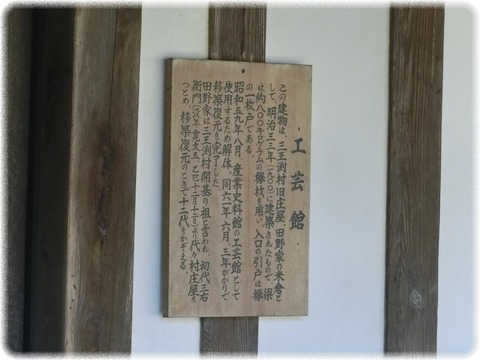 工芸館
この建物は、三王渕村旧庄屋、田野家の米倉と
して、明治三三年(一九〇〇)に建築されたもので、梁
は約八〇〇キログラムの欅材を用い、入口の引戸は欅
の一枚戸である。
昭和五九年八月、産業史料館の工芸館として
使用するため解体、同六一年六月、三年がかりで
移築復元を完了した。
田野家は三王渕村開基の祖と言われ、初代三右
衛門(寛文五、乙巳十二月十三日)より代々村庄屋を
つとめ、移築復元のときで十二代をかぞえる。